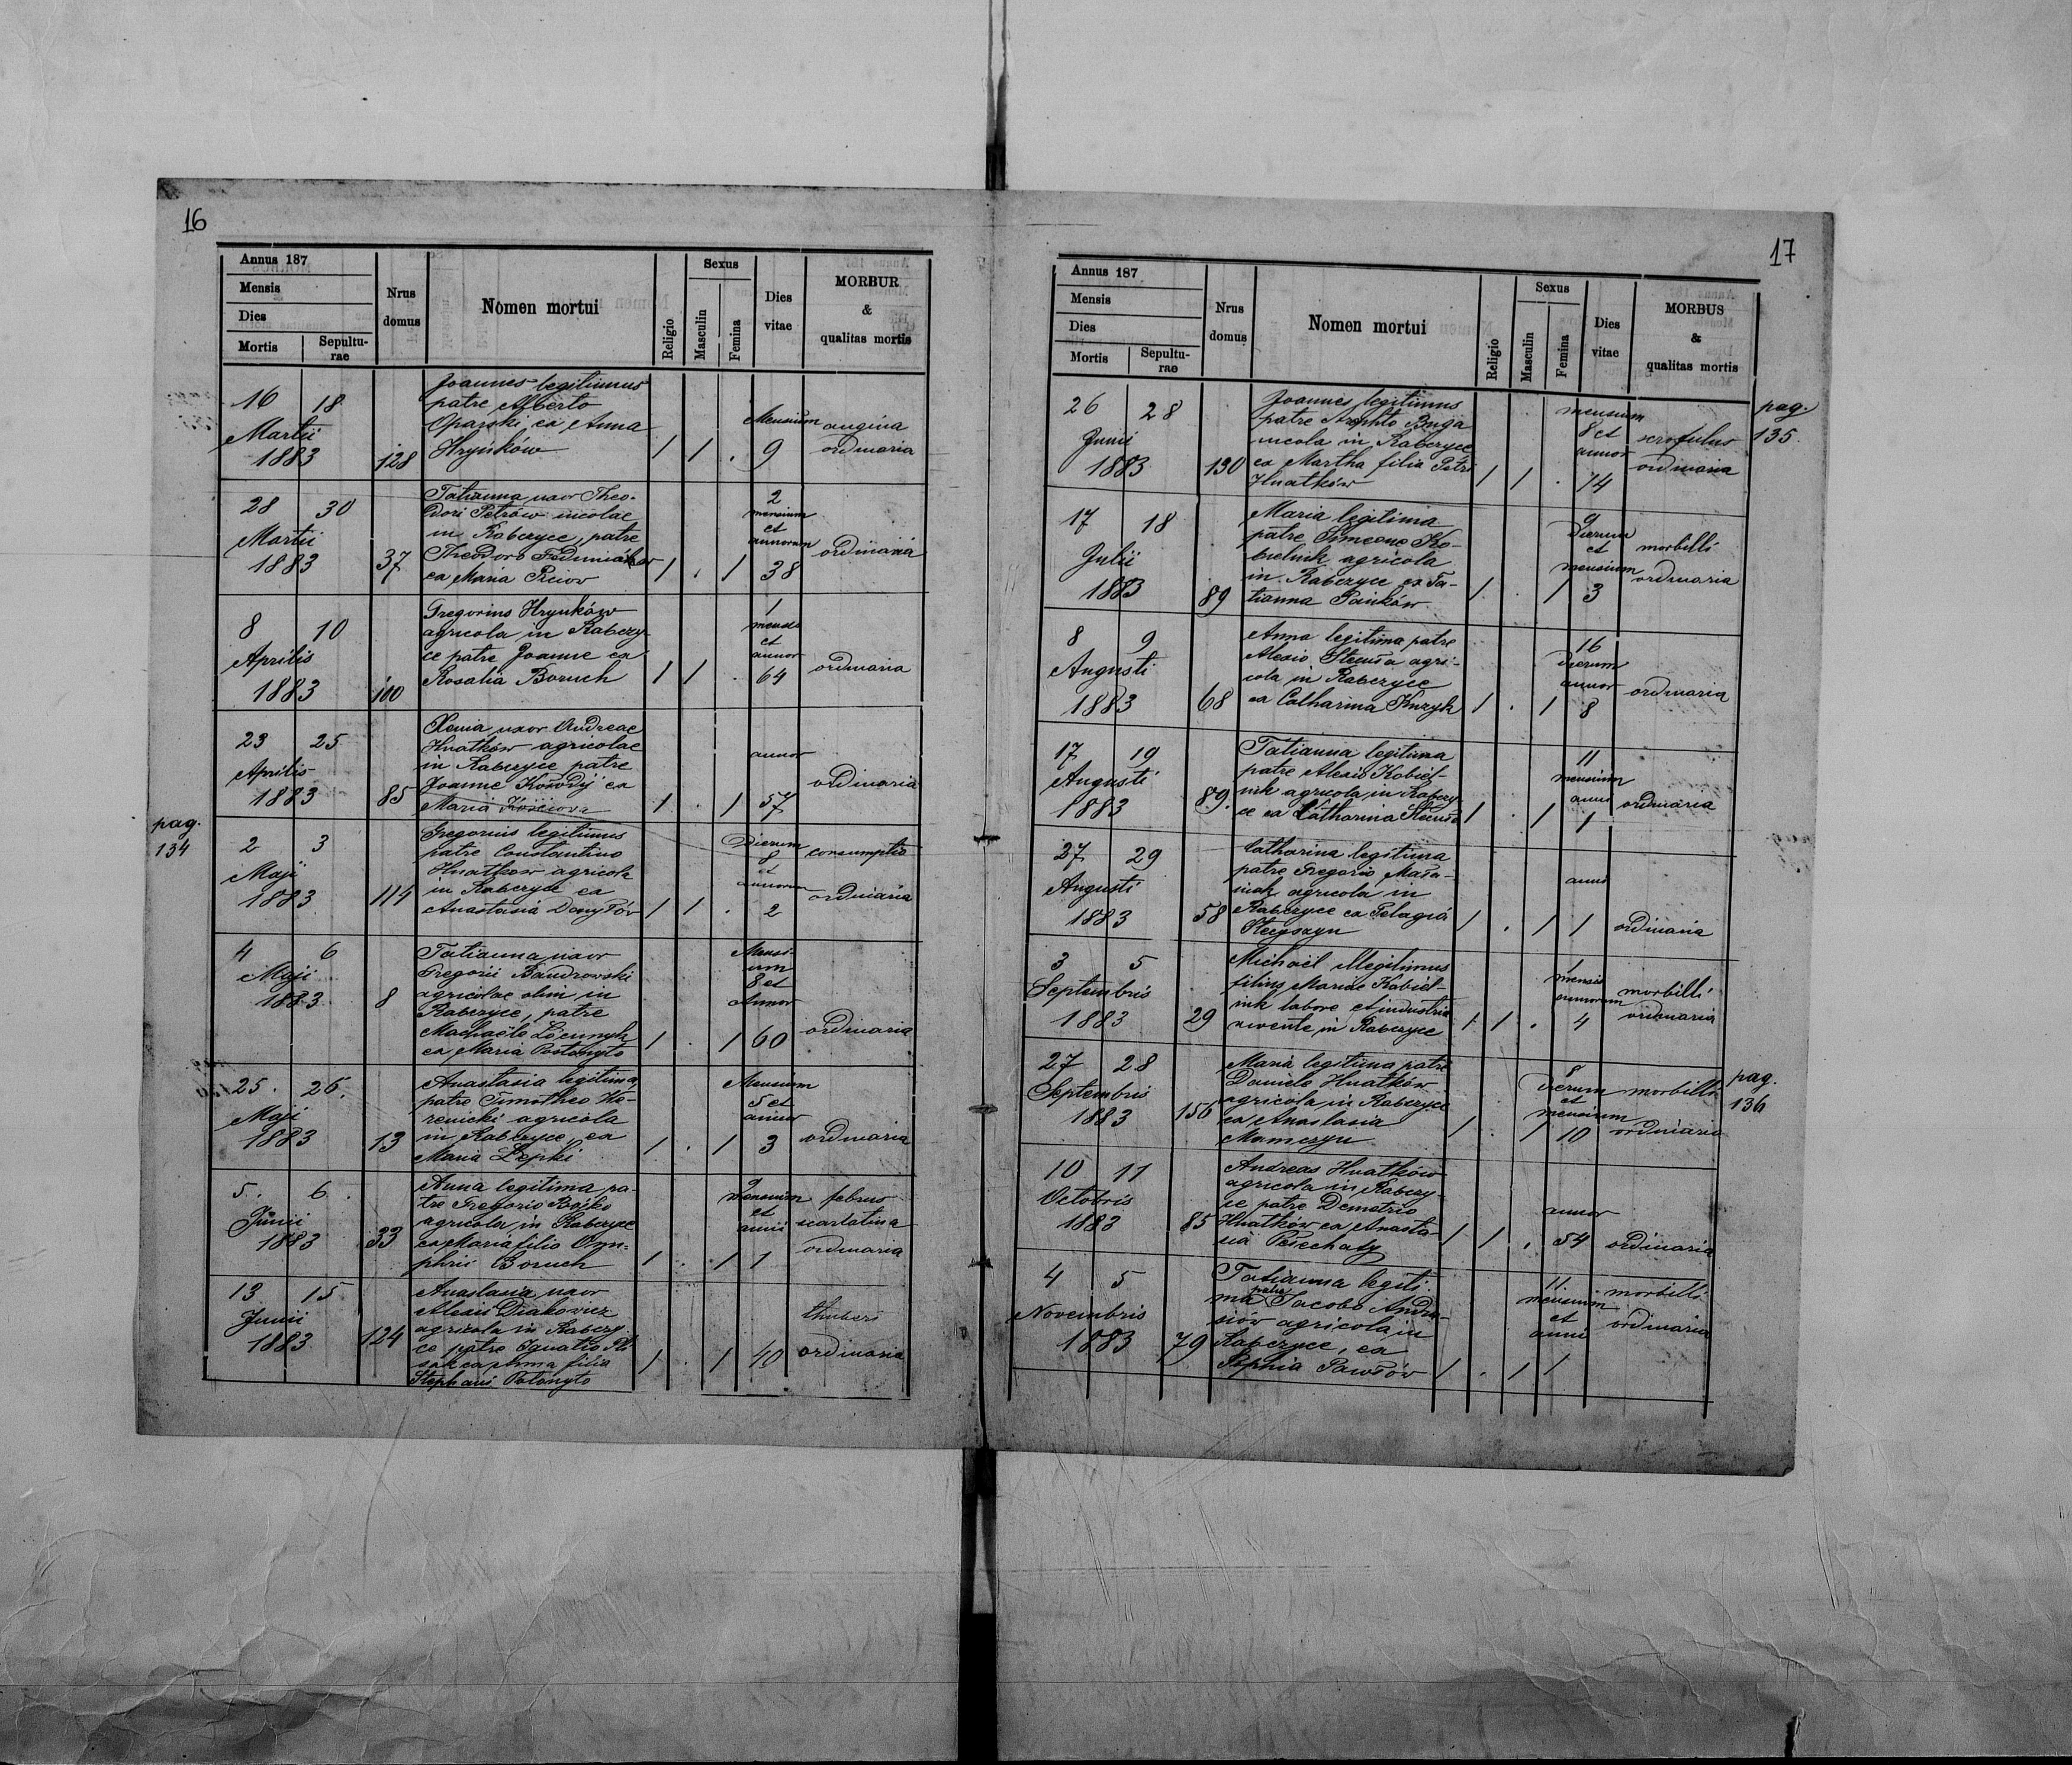 16
Annus 187
Mensis
Dies
Mortis
Sepultu-
rae
Nrus
domus
Nomen mortui
Religio
Sexus
Masculin
Femina
Dies
vitae
MORBUR
&
qualitas mortis
16 18
Martii
1883
128
Joannes legitimus
patre Alberto
Oparski, ex Anna
Hryńków
1 1 .
Mensium
9
angina
ordinaria
28 30
Martii
1883
37
Tatianna uxor Theo-
dori Petrów incolae
in Rabczyce, patre
Theodoro
ex Maria
1 . 1
2
mensium
et
annorum
38
ordinaria
8 10
Aprilis
1883
100
Gregorius Hryńków
agricola in Rabczy-
ce patre Joanne ex
Rosalia Boruch
1 1 .
1
mensis
et
annor
64
ordinaria
23 25
Aprilis
1883
85
Xenia uxor Andreae
Hnatków agricolae
in Rabczyce patre
Joanne ex
Maria
1 . 1
annor
57
ordinaria
pag.
134
2 3
Maji
1883
114
Gregorius legitimus
patre Constantino
Hnatkow agricola
in Rabczyce ex
Anastasia
1 1 .
Dierum
8
et
annorum
2
consumptio
ordinaria
4 6
Maji
1883
8
Tatianna uxor
Gregorii Bandrowski
agricolae olim in
Rabczyce, patre
ex Maria
1 . 1
Mensi-
um
8 et
Annor
60
ordinaria
25. 26.
Maji
1883
13
Anastasia legitima
patre Timotheo
agricola
in Rabczyce, ex
Maria Lepki
1 . 1
Mensium
5 et
annor
3
ordinaria
5. 6.
Junii
1883
33
Anna legitima pa-
tre Gregorio Bojko
agricola in Rabczyce
ex Maria filia Onu-
phrii Boruch
1 . 1
9
mensium
et
anni
1
februs
scarlatina
ordinaria
13 15
Junii
1883
124
Anastasia uxor
Alexii Diakowicz
agricola in Rabczy-
ce patre Ignatio
filia
Stephani
1 . 1
40
ordinaria
17
Annus 187
Mensis
Dies
Mortis
Sepultu-
rae
Nrus
domus
Nomen mortui
Religio
Sexus
Masculin
Femina
Dies
vitae
MORBUS
&
qualitas mortis
26 28
Junii
1883
130
Joannes legitimus
patre
incola in Rabczyce
ex Martha filia Petri
Hnatków
1 1 .
mensium
8 et
annor
14
scrofulus
ordinaria
pag.
135.
17 18
Julii
1883
89
Maria legitima
patre Simeone Ko-
bielnik agricola
in Rabczyce ex Ta-
tianna Pańków
1 . 1
9
Dierum
et
mensium
3
morbilli
ordinaria
8 9
Augusti
1883
68
Anna legitima patre
Alexio agri-
cola in Rabczyce
ex Catharina
1 . 1
16
dierum
annor
8
ordinaria
17 19
Augusti
1883
89.
Tatianna legitima
patre Alexio Kobiel-
nik agricola in Rabczy-
ce ex Catharina
1 . 1
11
mensium
anni
1
ordinaria
27 29
Augusti
1883
58
Catharina legitima
patre Gregorio
agricola in
Rabczyce ex Pelagia
1 . 1
anni
1
ordinaria
3 5
Septembris
1883
29
Michaël illegitimus
filius Mariae Kobiel-
nik labore et industria
vivente in Rabczyce
1 1 .
1
mensis
annorum
4
morbilli
ordinaria
27 28
Septembris
1883
156
Maria legitima patre
Daniele Hnatków
agricola in Rabczyce
ex Anastasia
Mamczyn
1 . 1
8
dierum
et
mensium
10
morbilli
ordinaria
pag.
136
10 11
Octobris
1883
85
Andreas Hnatków
agricola in Rabczy-
ce patre Demetrio
Hnatków ex Anasta-
sia
1 1 .
annor
54
ordinaria
4 5
Novembris
1883
79
Tatianna legiti-
ma patre Jacobo Andru-
siów agricola in
Rabczyce, ex
Sophia Pawłów
1 . 1
11
mensium
et
anni
1
morbilli
ordinaria